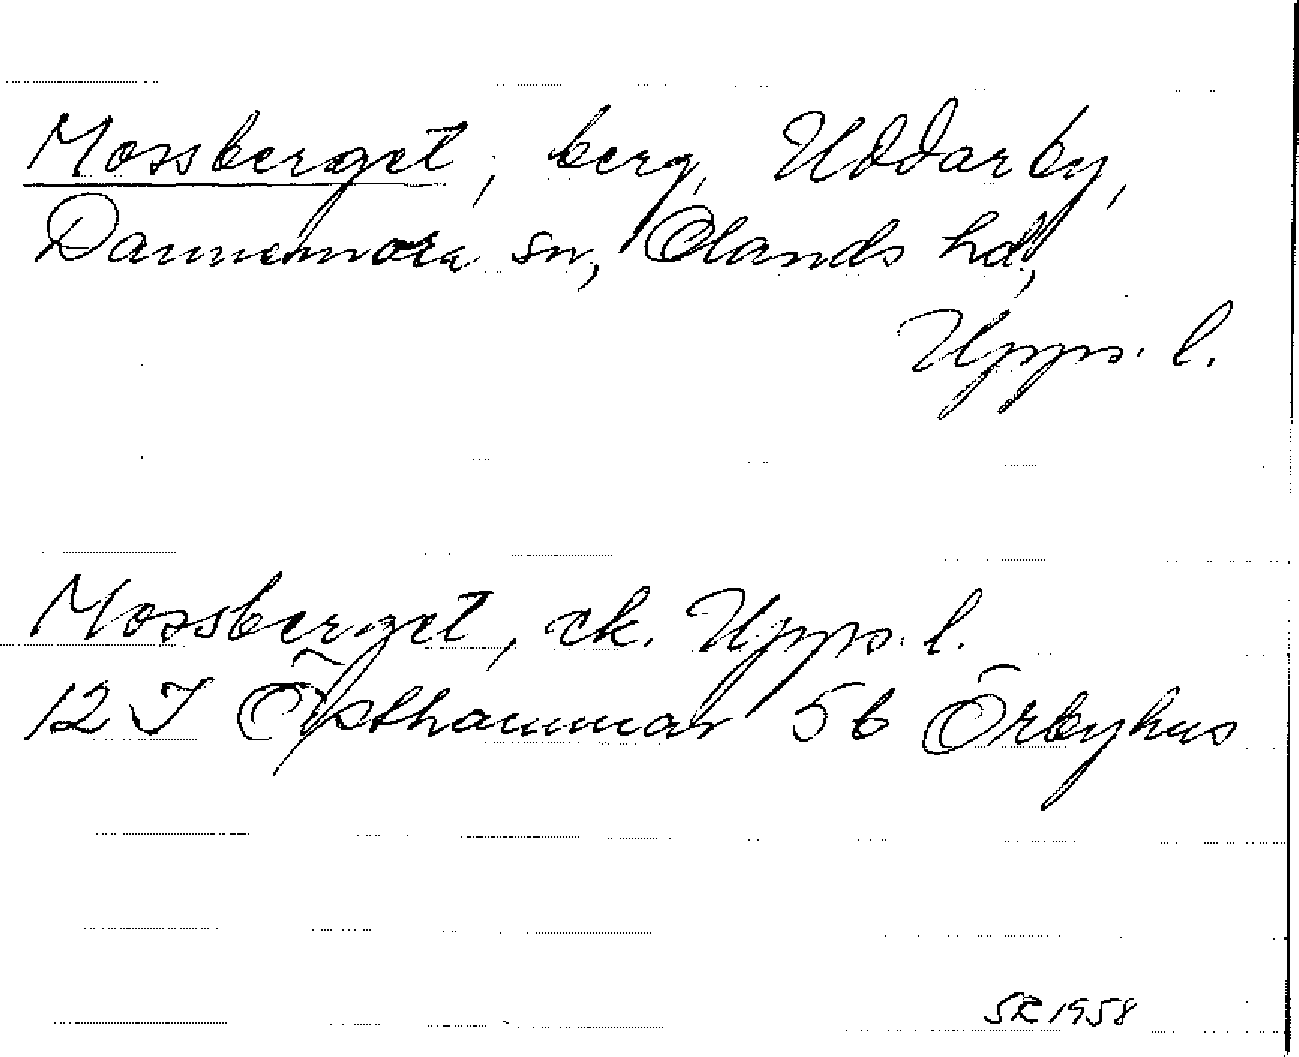 Mossberget, berg, Uddarby,
Dannemora sn, Olands hd,
Upps. l.
Mossberget, ek. Upps. l.
12 I Östhammar 5b Örbyhus
SR 1958